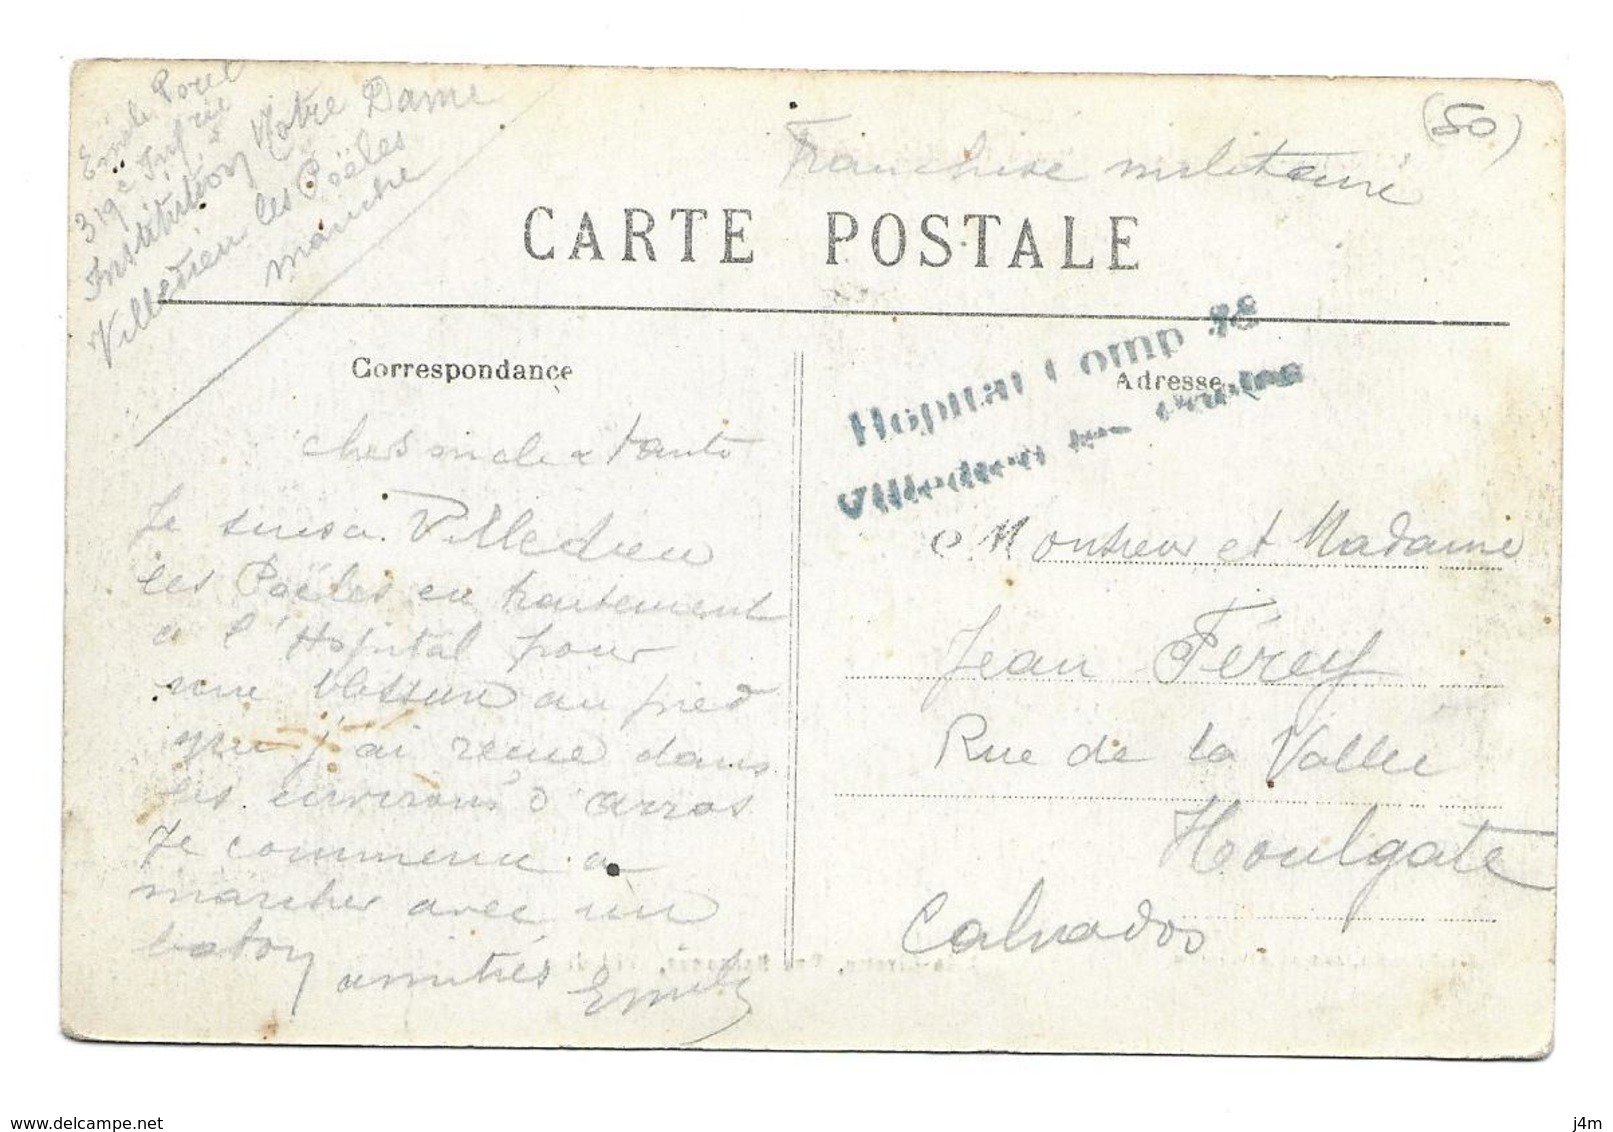 Emile Porel
319e Infrie
Institution Notre Dame
Villedieu les Poëles
manche
Franchise militaire
(50)
CARTE POSTALE
Correspondance
chers oncle & tante
Je suis a Villedieu
les Poëles en traitement
a l'Hopital pour
une blessure au pied
que j'ai recue dans
les environs d'arras
Je commence a
marcher avec un
baton
amitiés Emile
Adresse
Hopital Comp 28
Villedieu les Poëles
Monsieur et Madame
Jean Férey
Rue de la Vallée
Houlgate
Calvados
www.delcampe.net
j4m